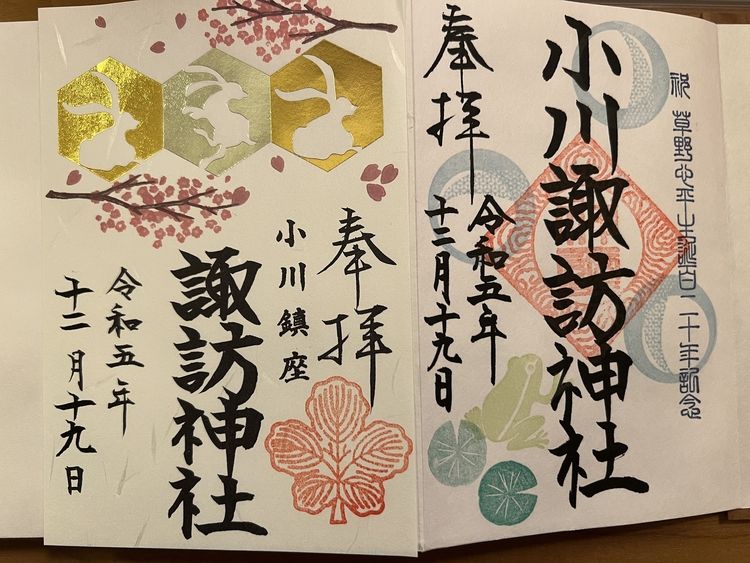 祝 草野心平生誕百二十年記念
小川諏訪神社
奉拝
令和五年
十二月十九日
奉拝
小川鎮座
諏訪神社
令和五年
十二月十九日